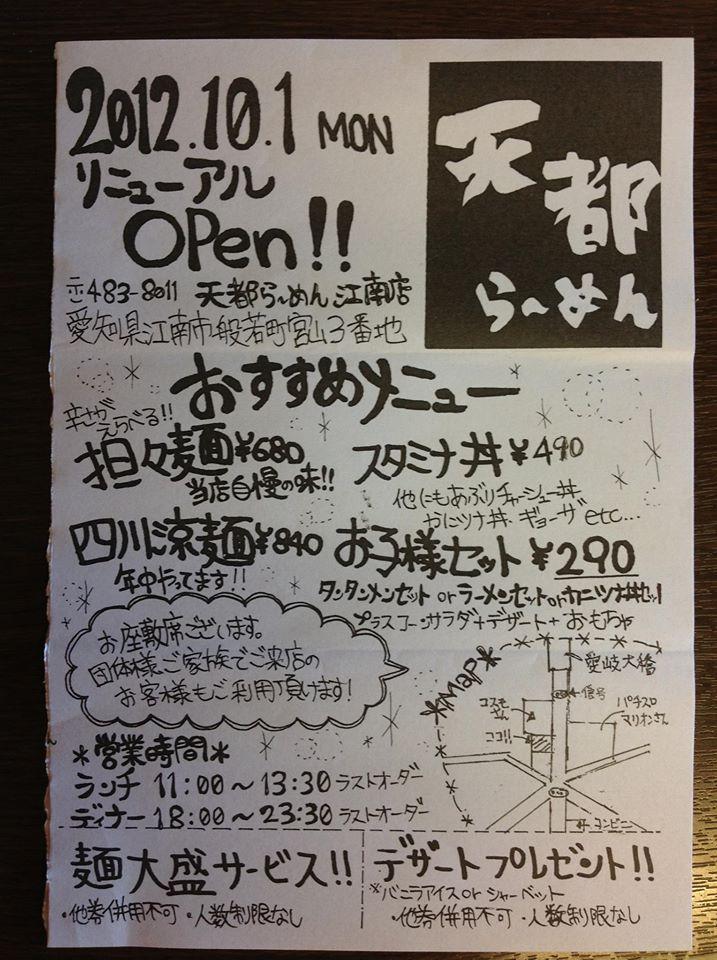 2012.10.1 MON
リニューアル
OPen!!
天都
ら～めん
〒483-8011 天都ら～めん江南店
愛知県江南市般若町宮山3番地
おすすめメニュー
辛さが
えらべる!!
担々麺¥680
当店自慢の味!!
スタミナ丼¥490
他にもあぶりチャーシュー丼、
かにツナ丼、ギョーザ etc...
四川涼麺¥840
年中やってます!!
お子様セット¥290
タンタンメンセット or ラーメンセット or カニツナ丼セット
プラスコーンサラダ+デザート+おもちゃ
お座敷席ございます。
団体様、ご家族でご来店の
お客様もご利用頂けます!
*営業時間*
ランチ 11:00～13:30 ラストオーダー
ディナー 18:00～23:30 ラストオーダー
*map*
愛岐大橋
信号
コスモさん
ココ!!
パチスロ
マリオンさん
コンビニ
麺大盛サービス!!
・他券併用不可 ・人数制限なし
デザートプレゼント!!
※バニラアイス or シャーベット
・他券併用不可 ・人数制限なし